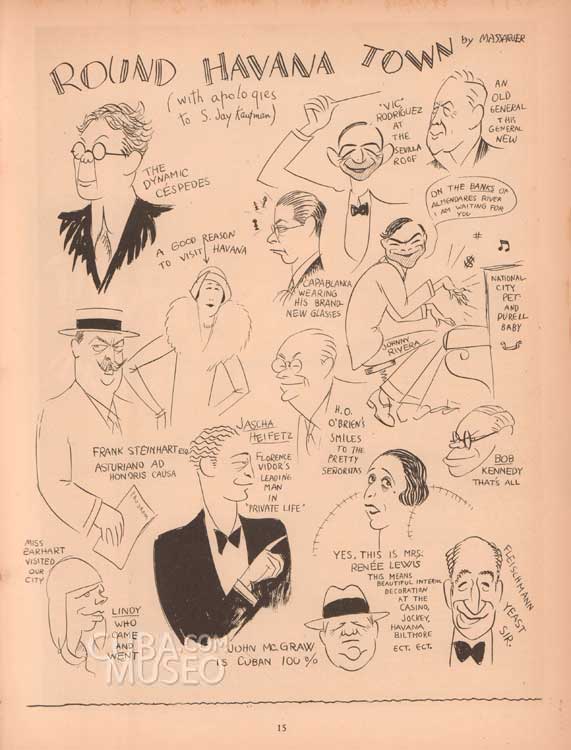 ROUND HAVANA TOWN by MASSAGUER
(with apologies
to S. Jay Kaufman)
THE
DYNAMIC
CÉSPEDES
"VIC"
RODRIGUEZ
AT
THE
SEVILLA
ROOF
AN
OLD
GENERAL
THIS
GENERAL
NEW
A GOOD REASON
TO VISIT HAVANA
CAPABLANKA
WEARING
HIS BRAND-
NEW GLASSES
ON THE BANKS OF
ALMENDARES RIVER
I AM WAITING FOR
YOU
NATIONAL
CITY
PET
AND
PURELL
BABY
JOHNNY
RIVERA
FRANK STEINHART ESQ.
ASTURIANO AD
HONORIS CAUSA
JASCHA
HEIFETZ
FLORENCE
VIDOR'S
LEADING
MAN
IN
"PRIVATE LIFE"
H.O.
O'BRIEN'S
SMILES
TO THE
PRETTY
SEÑORITAS
BOB
KENNEDY
THAT'S ALL
MISS
EARHART
VISITED
OUR
CITY
LINDY
WHO
CAME
AND
WENT
YES, THIS IS MRS.
RENÉE LEWIS
THIS MEANS
BEAUTIFUL INTERIOR
DECORATION
AT THE
CASINO,
JOCKEY,
HAVANA
BILTMORE
ECT. ECT.
JOHN McGRAW
IS CUBAN 100%
FLEISCHMANN
YEAST
SIR.
CUBA.COM
MUSEO
15